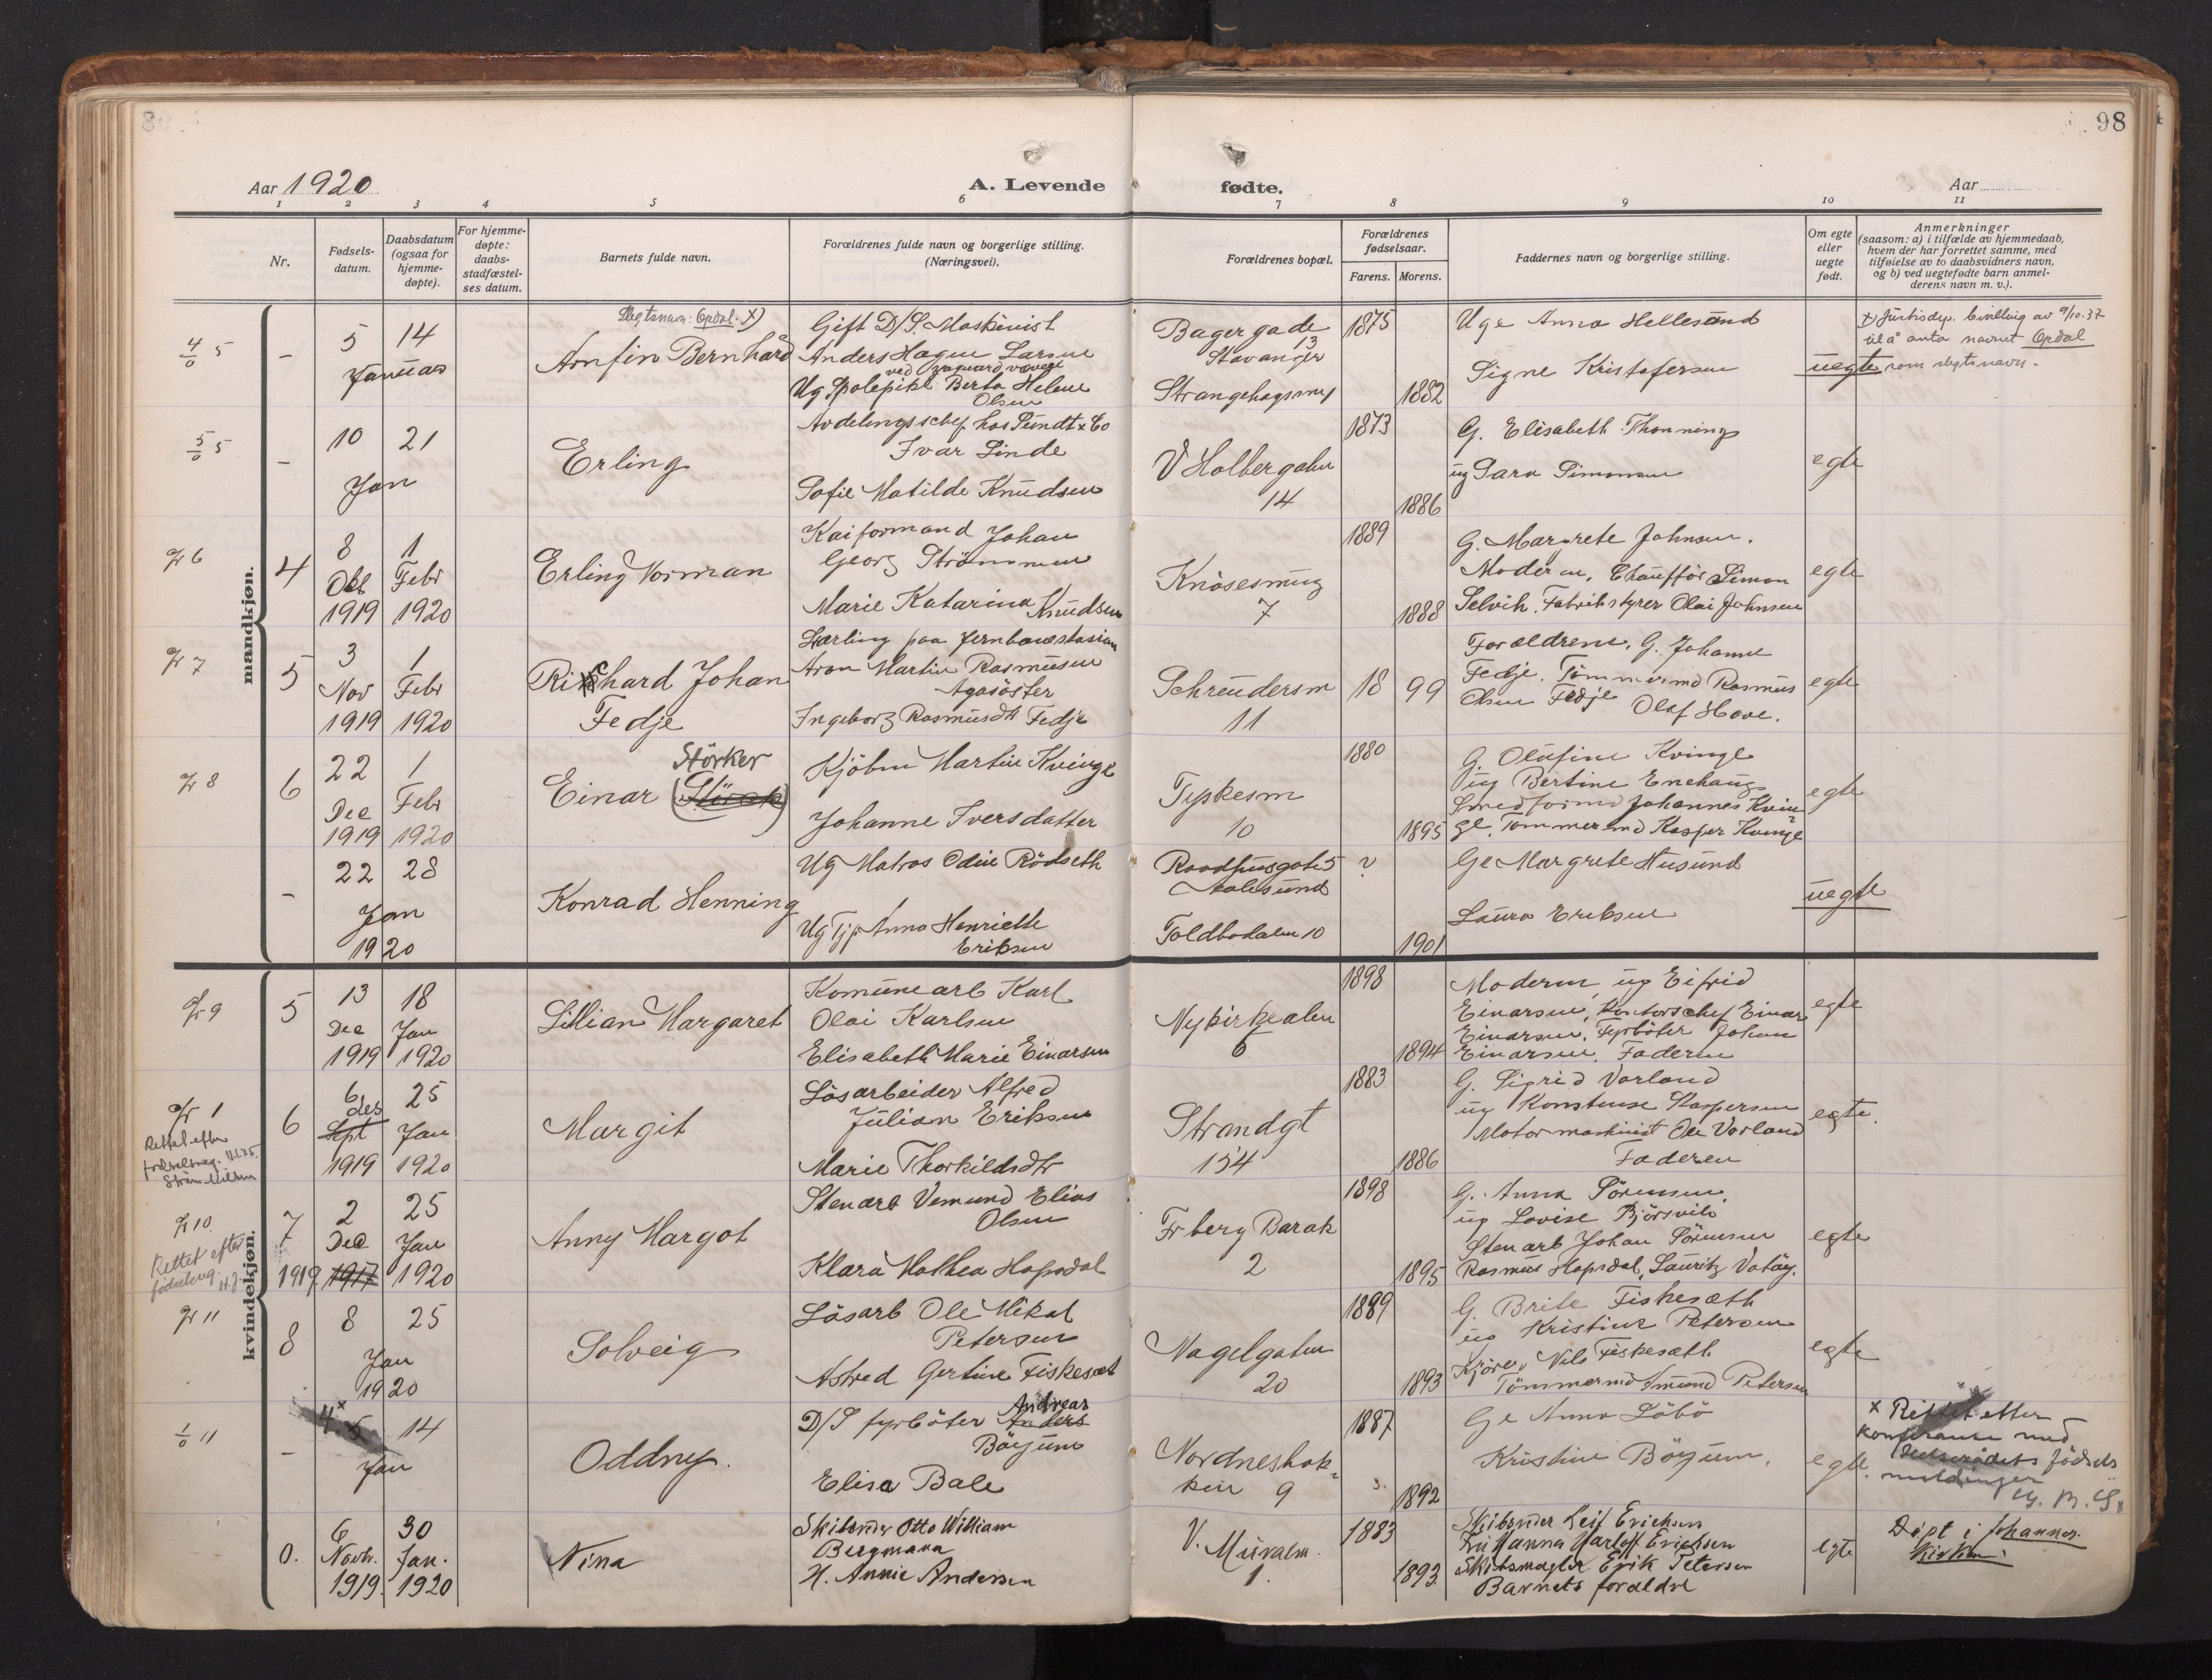 98
Aar 1920
A. Levende fødte.
Aar
1 2 3 4 5 6 7 8 9 10 11
Nr.
Fødsels-
datum.
Daabsdatum
(ogsaa for
hjemme-
døpte).
For hjemme-
døpte:
daabs-
stadfæstel-
ses datum.
Barnets fulde navn.
Forældrenes fulde navn og borgerlige stilling.
(Næringsvei).
Forældrenes bopæl.
Forældrenes
fødselsaar.
Farens. Morens.
Faddernes navn og borgerlige stilling.
Om egte
eller
uegte
født.
Anmerkninger
(saasom: a) i tilfælde av hjemmedaab,
hvem der har forrettet samme, med
tilføielse av to daabsvidners navn,
og b) ved uegtefødte barn anmel-
derens navn m. v.).
mandkjøn.
4/0 5
–
5 14
Januar
Slegtsnavn: Opdal. x)
Arnfin Bernhard
Gift D/S. Maskinist
Anders Hagen Larsen
Ug Spolepike Berta Helene
Olsen
Bagergade
13
Stavanger
Strangehagen
1875
1882
Uge Anna Hellesund
Signe Kristofersen
uegte
x) Justisdep. bevilling av 9/10.37
til å anta navnet Opdal
som slegtsnavn.
5/0 5
–
10 21
Jan
Erling
Avdelingsschef hos Sundt & Co
Ivar Linde
Sofie Matilde Knudsen
V Holbergalm
14
1873
1886
G. Elisabeth Thonning
ug Sara Simonsen
egte
6
4
8 1
Okt Febr
1919 1920
Erling Norman
Kaiformand Johan
Georg Strömmen
Marie Katarina Knudsen
Knösesmug
7
1889
1888
G. Margrete Johnsen.
Moderen, Chauffør Simon
Selvik, Fabrikstyrer Olai Johnsen
egte
7
5
3 1
Nov Febr
1919 1920
Richard Johan
Fedje
Lærling paa Jernbanestasion
Aron Martin Rasmusen
Agasöster
Ingeborg Rasmusdtr Fedje
Schreudersm
11
18 99
Forældrene, G. Johanne
Fedje. Tömmermd Rasmus
Olsen Fedje Olaf Hove.
egte
8
6
22 1
Dec Febr
1919 1920
Störker
Einar
Kjöbm Martin Kvinge
Johanne Iversdatter
Tyskesm
10
1880
1895
G. Olufine Kvinge
ug Bertine Enehaug
Smedformd Johannes Kvin-
ge. Tömmermd Kasper Kvinge
egte
–
22 28
Jan
1920
Konrad Henning
Ug Matros Odin Rödseth
Ug Tjp Anna Henriette
Eriksen
Raadhusgate 5
Aalesund
Toldbodalm 10
?
1901
Ge Margrete Husund
Laura Eriksen
uegte
kvindekjøn.
9
5
13 18
Dec Jan
1919 1920
Lillian Margaret
Komunearb Karl
Olai Karlsen
Elisabeth Marie Einarsen
Nykirkealm
6
1898
1894
Moderen, ug Eifrid
Einarsen, Kontorschef Einar
Einarsen. Fyrböter Johan
Einarsen. Faderen
egte
1
Rettet efter
6
6 25
des
Sept Jan
1919 1920
Margit
Lösarbeider Alfred
Julian Eriksen
Marie Thorkildsdtr
Strandgt
154
1883
1886
G. Sigrid Vorland
ug Konstanse Kaspersen
Motormaskinist Ole Vorland
Faderen
egte.
10
Rettet efter
7
2 25
Dec Jan
1919 1917 1920
Anny Margot
Stenarb Vemund Elias
Olsen
Klara Mathea Hopsdal
Fr berg Barak
2
1898
1895
G. Anna Sörensen,
ug Lovise Björsvik
Stenarb Johan Sörensen
Rasmus Hopsdal, Lauritz Votöy.
egte
11
8
8 25
Jan
1920
Solveig
Lösarb Ole Mikal
Petersen
Astrid Gertine Fiskesæt
Nagelgaten
20
1889
1893
G. Brite Fiskesæth
ug Kristine Petersen
Kjörer Nils Fiskesæth
Tömmermd Amund Petersen
egte
1/0 11
–
4.x 14
Jan
Oddny.
Andreas
D/S fyrböter Anders
Böyum
Elise Bale
Nordneshak-
ken 9
1887
1892
Ge Anna Löbö
Kristine Böyum,
egte.
x Rettet etter
konferanse med
Helserådets fødsels
meldinger
0.
6 30
Novb. Jan.
1919. 1920
Nina
Skibsreder Otto William
Bergmann
H. Annie Andersen
V. Muralm.
1.
1883
1893
Skibsreder Leif Erichsen
Fru Hanna Harloff Erichsen
Skibsmægler Erik Petersen
Barnets forældre
egte
Døpt i Johannes-
kirken.